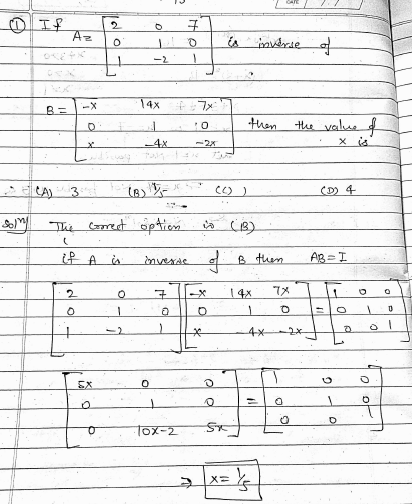 ① If A= [2 0 7
0 1 0
1 -2 1] is inverse of
B = [-x 14x 7x
0 1 0
x -4x -2x] then the value of x is
(A) 3 (B) 1/5 (C) 1 (D) 4
Solⁿ) The correct option is (B)
if A is inverse of B then AB=I
[2 0 7 [-x 14x 7x [1 0 0
0 1 0 0 1 0 = 0 1 0
1 -2 1] x -4x -2x] 0 0 1]
[5x 0 0 [1 0 0
0 1 0 = 0 1 0
0 10x-2 5x] 0 0 1]
⇒ x= 1/5